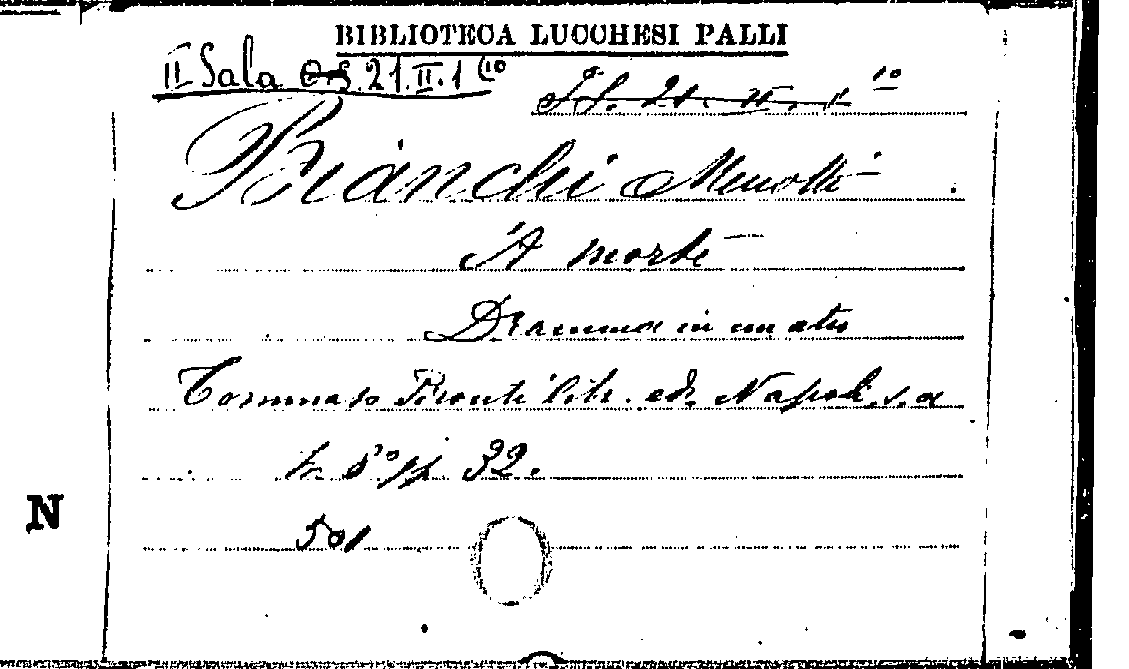 BIBLIOTECA LUCCHESI PALLI
II Sala 21.II.1 (10
Sf. 21. II. 1 10
Bianchi Menotti
'A morte
Dramma in un atto
Tommaso Pironti libr. ed. Napoli s.a
8° pp. 32.
501
N